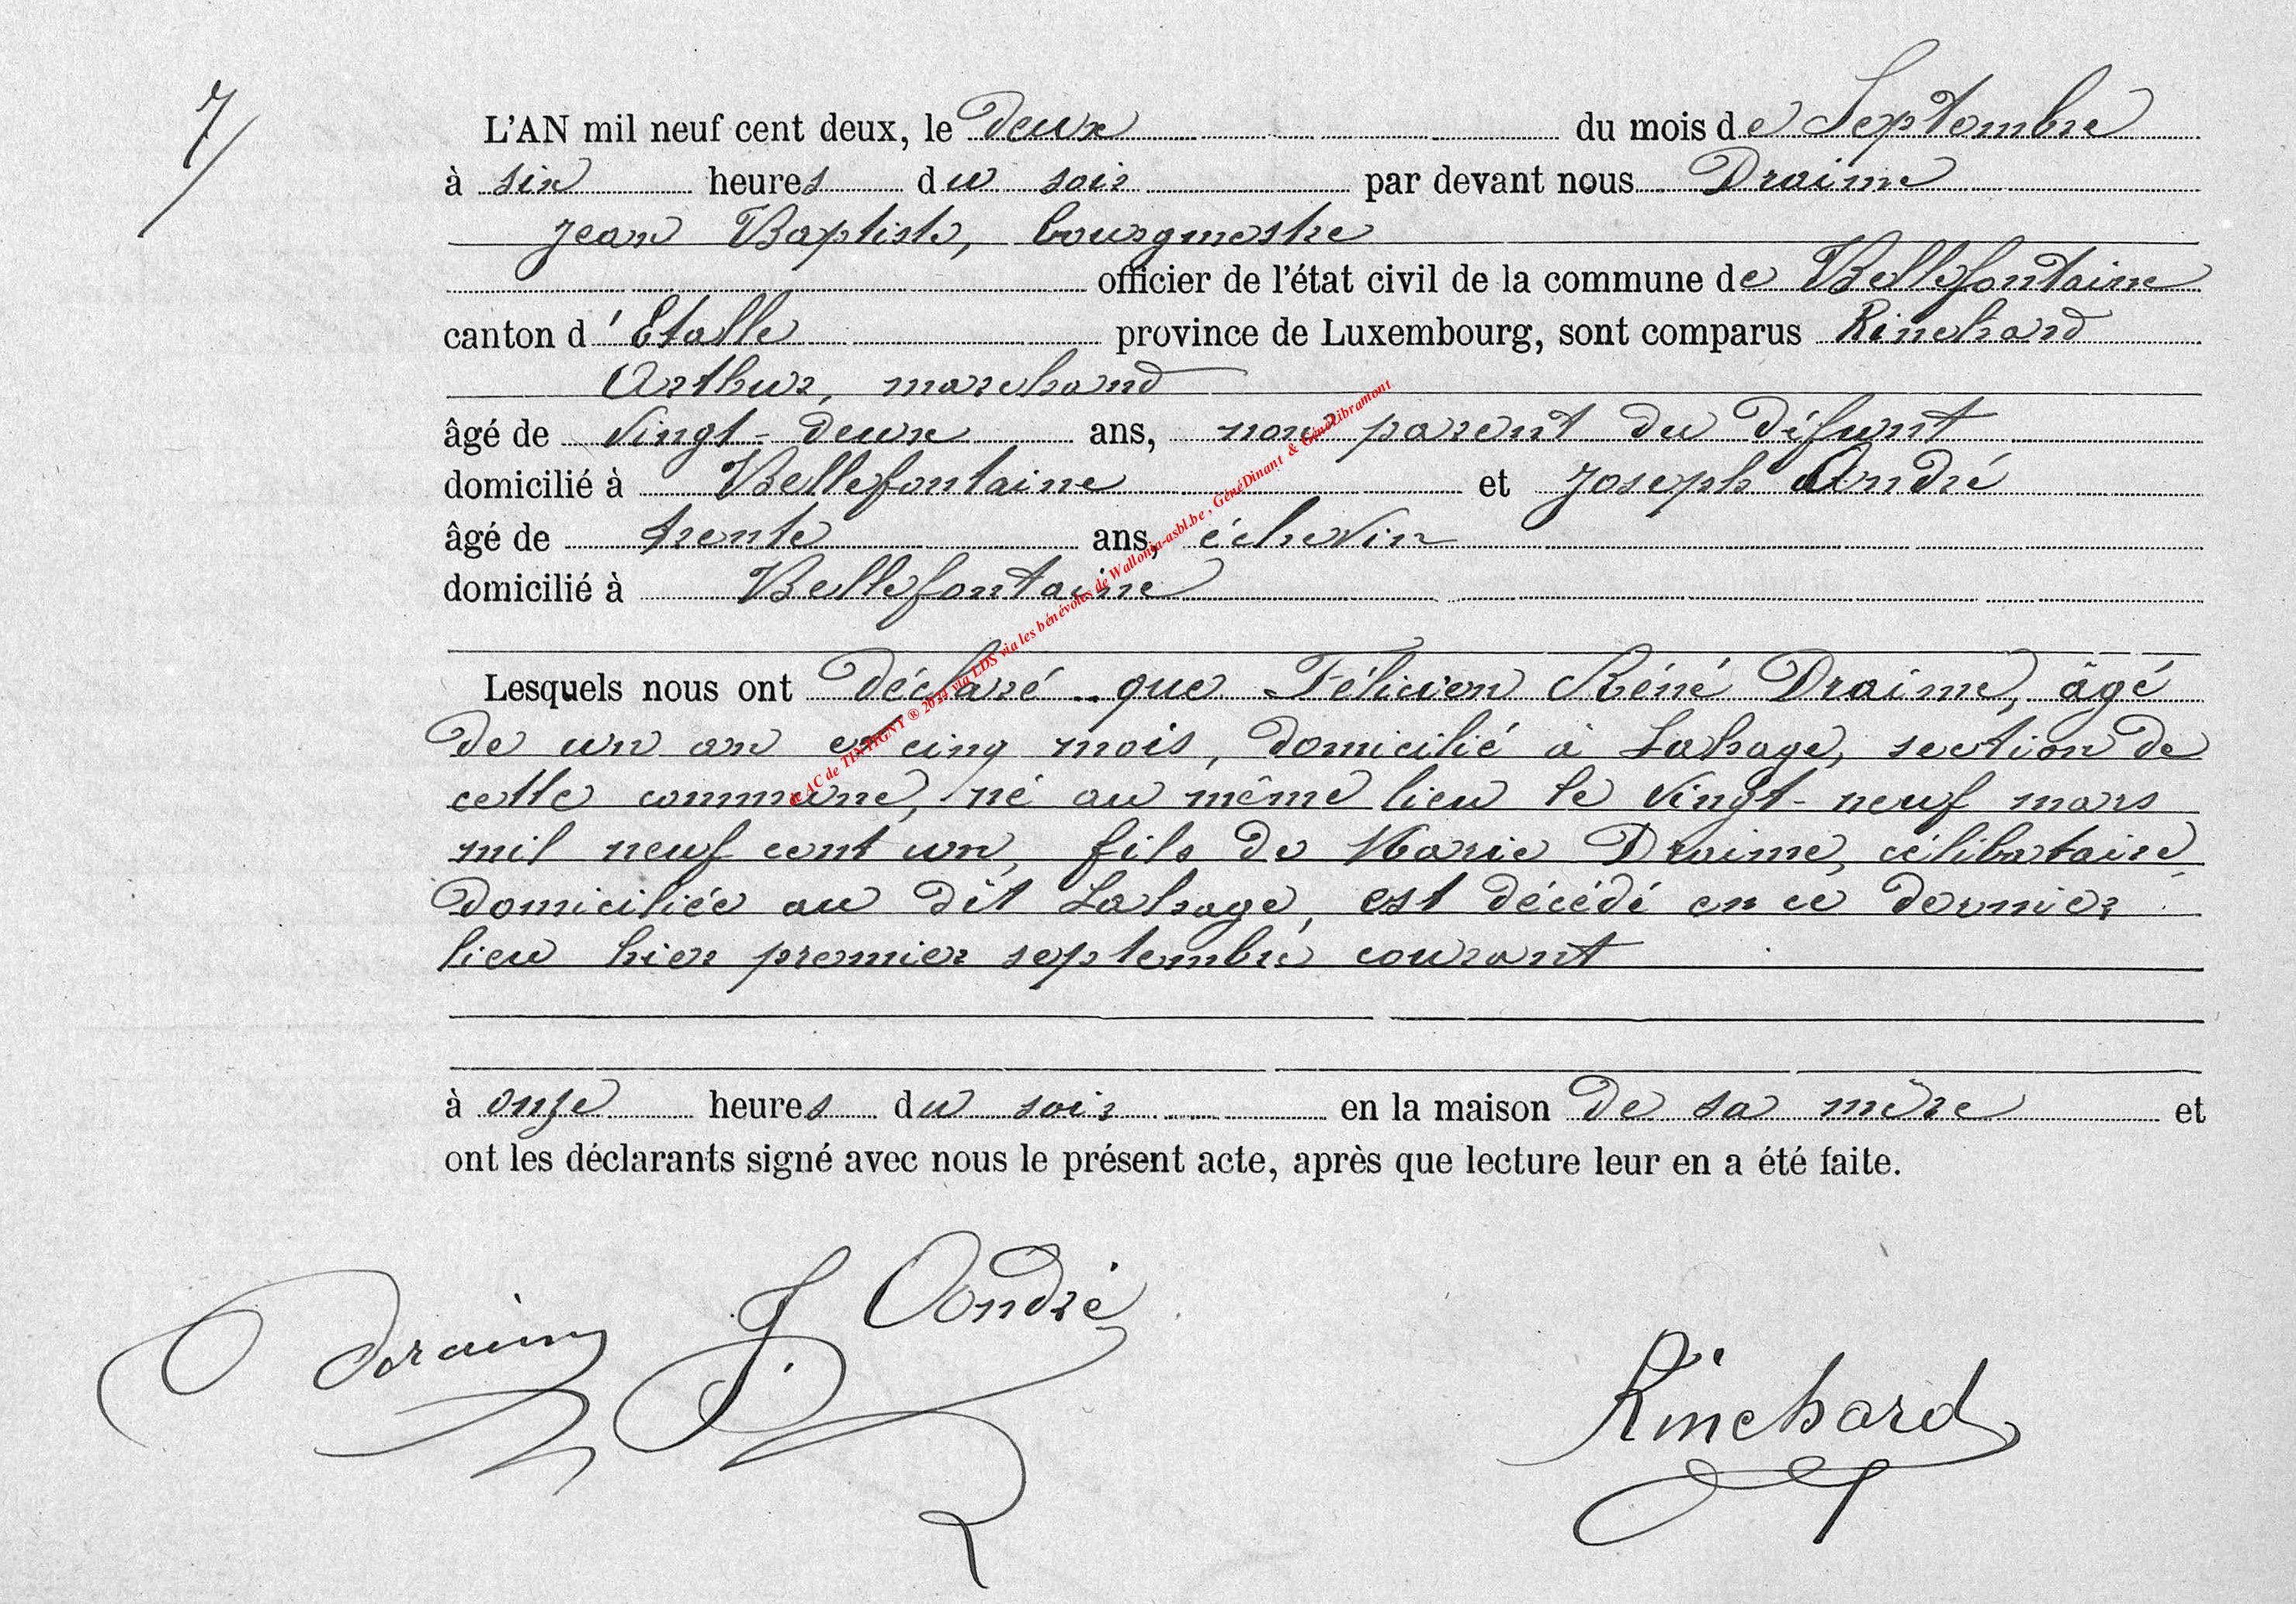 7/
L'AN mil neuf cent deux, le deux du mois de Septembre
à six heures du soir par devant nous Draime
Jean Baptiste, bourgmestre
officier de l'état civil de la commune de Bellefontaine
canton d'Etalle province de Luxembourg, sont comparus Rinchard
Arthur, marchand
âgé de vingt-deux ans, non parent du défunt
domicilié à Bellefontaine et Joseph André
âgé de trente ans, échevin
domicilié à Bellefontaine
Lesquels nous ont déclaré que Félicien Réné Draime, âgé
de un an et cinq mois, domicilié à Lahage, section de
cette commune, né au même lieu le vingt-neuf mars
mil neuf cent un, fils de Marie Draime, célibataire,
domiciliée au dit Lahage, est décédé en ce dernier
lieu hier premier septembre courant
à onze heures du soir en la maison de sa mère et
ont les déclarants signé avec nous le présent acte, après que lecture leur en a été faite.
Draime J André
Rinchard
de AC de TINTIGNY ® 2024 via LDS via les bénévoles de Wallonia-asbl.be, GénéDinant & GénéLibramont